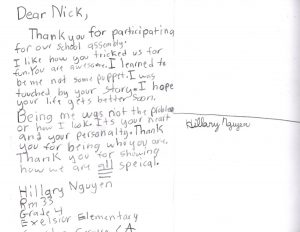 Dear Nick,
Thank you for participating
for our school assembly!
I like how you tricked us for
fun. You are awesome. I learned to
be me not some puppet. I was
touched by your story. I hope
your life gets better soon.
Being me was not the problem
or how I look. Its your heart
and your personalty. Thank
you for being who you are.
Thank you for showing
how we are all speical.
Hillary Nguyen
Hillary Nguyen
Rm 33
Grade 4
Exelsior Elementary
CA